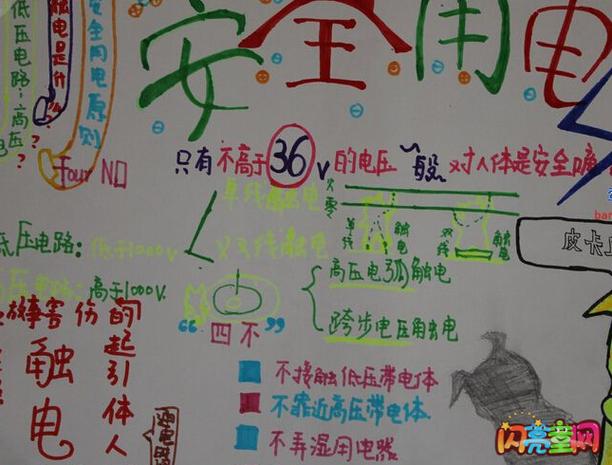 安全用电
低压电路：高压
触电是什么？
安全用电原则
four NO
只有不高于36v的电压一般对人体是安全哦
单线触电
双线触电
火
零
单线
触电
双线
触电
低压电路：低于1000v
高于1000V.
高压电弧触电
跨步电压触电
“四不”
不接触低压带电体
不靠近高压带电体
不弄湿用电器
触电
伤害事故
的起引体人
皮卡
闪亮童网